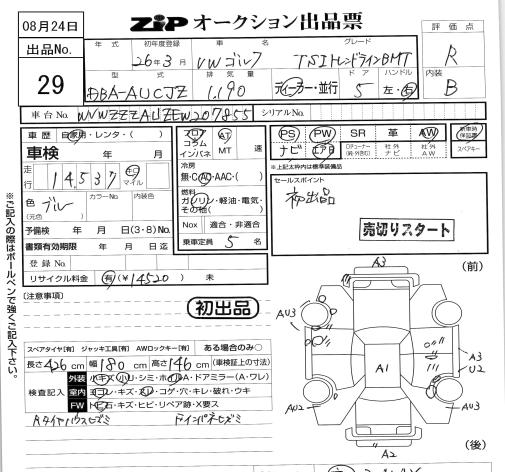 08月24日
ZIP オークション出品票
評価点
出品No.
29
年式
初年度登録
車名
グレード
26年3月
VWゴルフ
TSIトレンドラインBMT
R
型式
排気量
ドア
ハンドル
内装
DBA-AUCJZ
1,190
ディーラー・並行
5
左・右
B
車台No.
WVWZZZAUZEW207855
シリアルNo.
車歴
自家用・レンタ・( )
車検
年 月
走行
14,537
キロ
マイル
色
(元色)
ブルー
カラーNo.
内装色
予備検 年 月 日(3・8)No.
書類有効期限 年 月 日迄
登録No.
リサイクル料金
有(¥14520)
未
フロア
コラム
インパネ
AT
MT
速
冷房
無・C・AC・AAC・( )
燃料
ガソリン・軽油・電気・
その他( )
Nox
適合・非適合
乗車定員
5
名
PS
PW
SR
革
AW
新車時
保証書
ナビ
エアB
社外
ナビ
社外
AW
スペアキー
※上記太枠内は標準装備品
セールスポイント
初出品
売切りスタート
※ご記入の際はボールペンで強くご記入下さい。
(注意事項)
初出品
スペアタイヤ[有] ジャッキ工具[有] AWロックキー[有] ある場合のみ○
長さ426cm 幅180cm 高さ146cm (車検証上の寸法)
検査記入
外装
小キズ・小U・シミ・ホイルA・ドアミラー(A・ワレ)
室内
ヨゴレ・キズ・スレ・コゲ・穴・キレ・破れ・ウキ
FW
トビ石・キズ・ヒビ・リペア跡・X要ス
(前)
A3
AU3
A1
A3
U2
AU2
AU3
A2
(後)